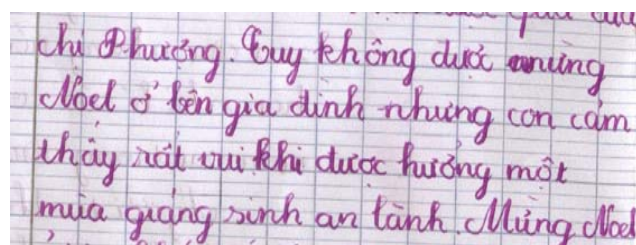 chị Phương. Tuy không được mừng
Noel ở bên gia đình nhưng con cảm
thấy rất vui khi được hưởng một
mùa giáng sinh an lành. Mừng Noel